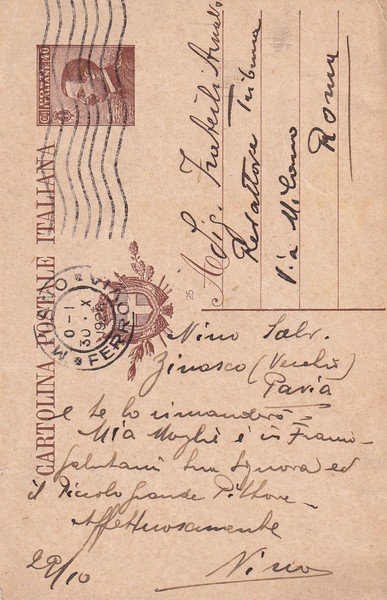 POSTE ITALIANE 40
CARTOLINA POSTALE ITALIANA
MILANO
FERROVIA
0-1
30 X
192
A Sig. Frateili Arnaldo
Redattore Tribuna
Via Milano
Roma
25
Nino Salv.
Zinasco (Vecchio)
Pavia
e te lo rimanderò.
Mia Moglie è in
Salutami tua Signora ed
il Piccolo grande Pittore
Affettuosamente
29/10
Nino